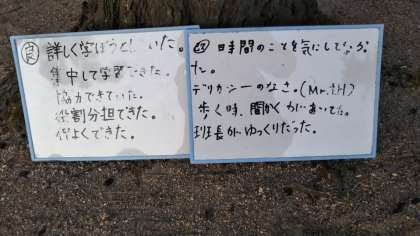 良 詳しく学ぼうとしていた。
集中して学習できた。
協力できていた。
役割分担できた。
仲よくできた。
時間のことを気にしてなかった。
デリカシーのなさ。(Mr.
歩く時、間かくがあいてた。
班長がゆっくりだった。